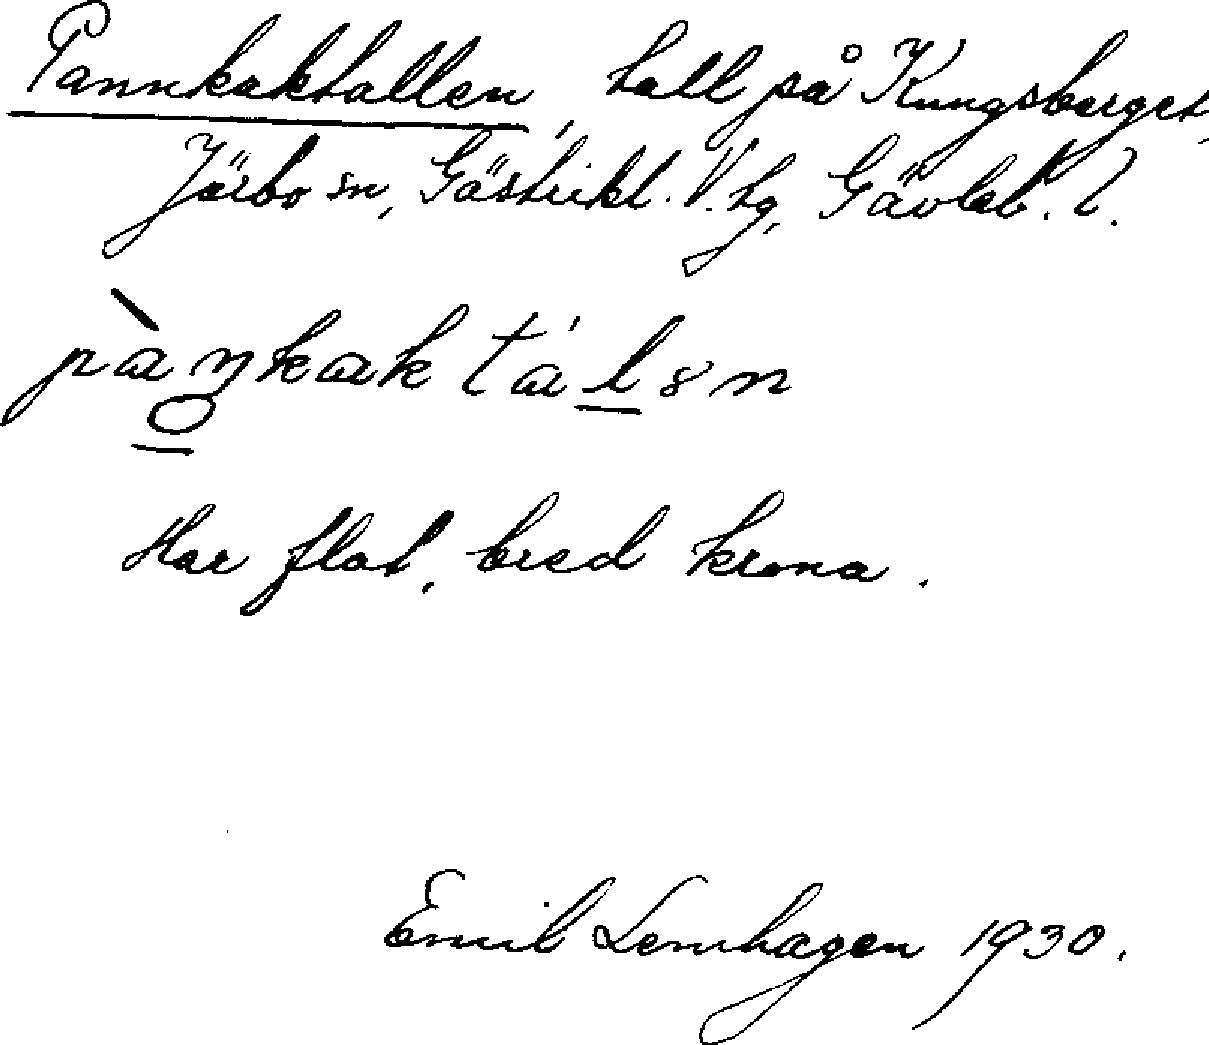 Pannkaktallen, tall på Kungsberget,
Järbo sn, Gästrikl. V. tg, Gävleb. l.
pàŋkaktálən
Har flat, bred krona.
Emil Lernhagen 1930.